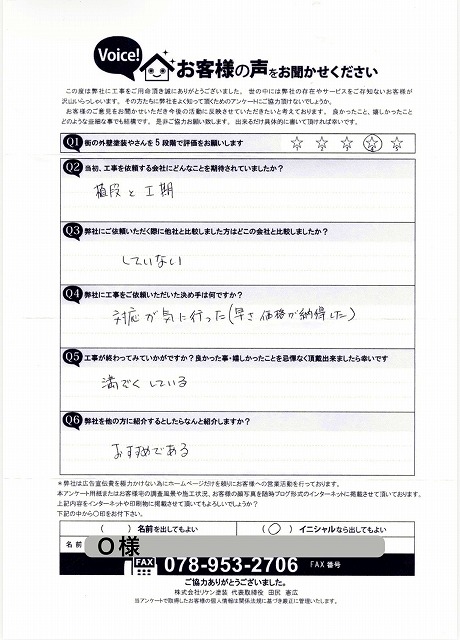 Voice!
お客様の声をお聞かせください
この度は弊社に工事をご用命頂き誠にありがとうございました。世の中には弊社の存在やサービスをご存知ないお客様が
沢山いらっしゃいます。その方たちに弊社をよく知って頂くためのアンケートにご協力頂けないでしょうか。
お客様のご意見をお聞かせいただき今後の活動に反映させていただきたいと考えております。良かったこと、嬉しかったこと
どのような些細な事でも結構です。是非ご協力お願い致します。出来るだけ具体的に書いて頂ければ幸いです。
Q1 街の外壁塗装やさんを5段階で評価をお願いします
1 2 3 4 5
Q2 当初、工事を依頼する会社にどんなことを期待されていましたか?
値段と工期
Q3 弊社にご依頼いただく際に他社と比較しました方はどこの会社と比較しましたか?
していない
Q4 弊社に工事をご依頼いただいた決め手は何ですか?
対応が気に行った(早さ 価格が納得した)
Q5 工事が終わってみていかがですか?良かった事・嬉しかったことを忌憚なく頂戴出来ましたら幸いです
満ぞくしている
Q6 弊社を他の方に紹介するとしたらなんと紹介しますか?
おすすめである
*弊社は広告宣伝費を極力かけない為にホームページだけを頼りにお客様への営業活動を行っております。
本アンケート用紙またはお客様宅の調査風景や施工状況、お客様の顔写真を随時ブログ形式のインターネットに掲載させて頂いております。
上記内容をインターネットや印刷物に掲載させて頂いてもよろしいでしょうか?
下記の中から〇印をお付下さい。
( ) 名前を出してもよい (〇) イニシャルなら出してもよい
名前 O様
FAX 078-953-2706 FAX番号
ご協力ありがとうございました。
株式会社リケン塗装 代表取締役 田尻 憲広
当アンケートで取得したお客様の個人情報は関係法規に基づき厳正に管理いたします。